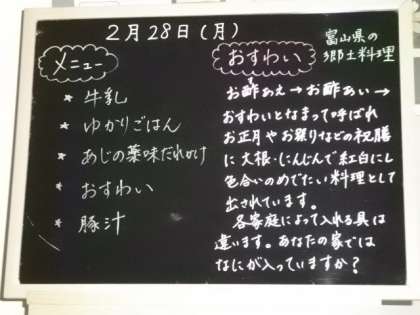 2月28日(月)
メニュー
* 牛乳
* ゆかりごはん
* あじの薬味だれかけ
* おすわい
* 豚汁
おすわい
富山県の
郷土料理
お酢あえ→お酢あい→
おすわいとなまって呼ばれ
お正月やお祭りなどの祝膳
に大根・にんじんで紅白にし
色合いのめでたい料理として
出されています。
各家庭によって入れる具は
違います。あなたの家では
なにが入っていますか?